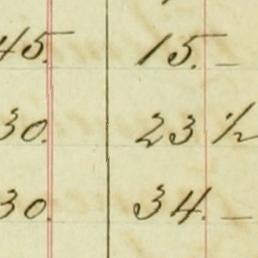 45. 15. –
30. 23 ½
30. 34. –